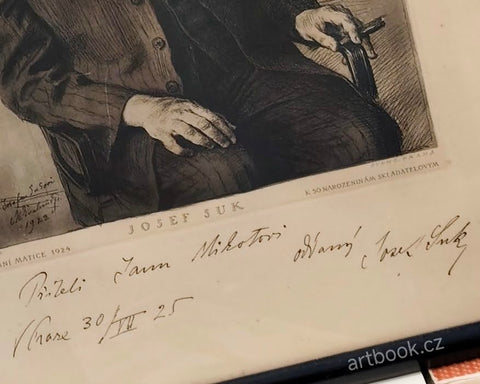 1922
JOSEF SUK
MATICE 1924
K 50. NAROZENINÁM SKLADATELOVÝM
Příteli Janu Mikotovi oddaný Josef Suk
V Praze 30/VII 25
artbook.cz